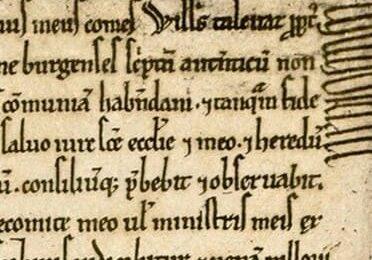 meus comes Wills taleuat ppt
ne burgenses sc͡ptū autenticū non
cōmuniā habn̄dam. ⁊ tanq̄m fide
saluo iure scē ecclie ⁊ meo. ⁊ heredū
ū. consiliūq; p̄bebit ⁊ obseruabit.
ecomite meo ul̄ ministris meis ex